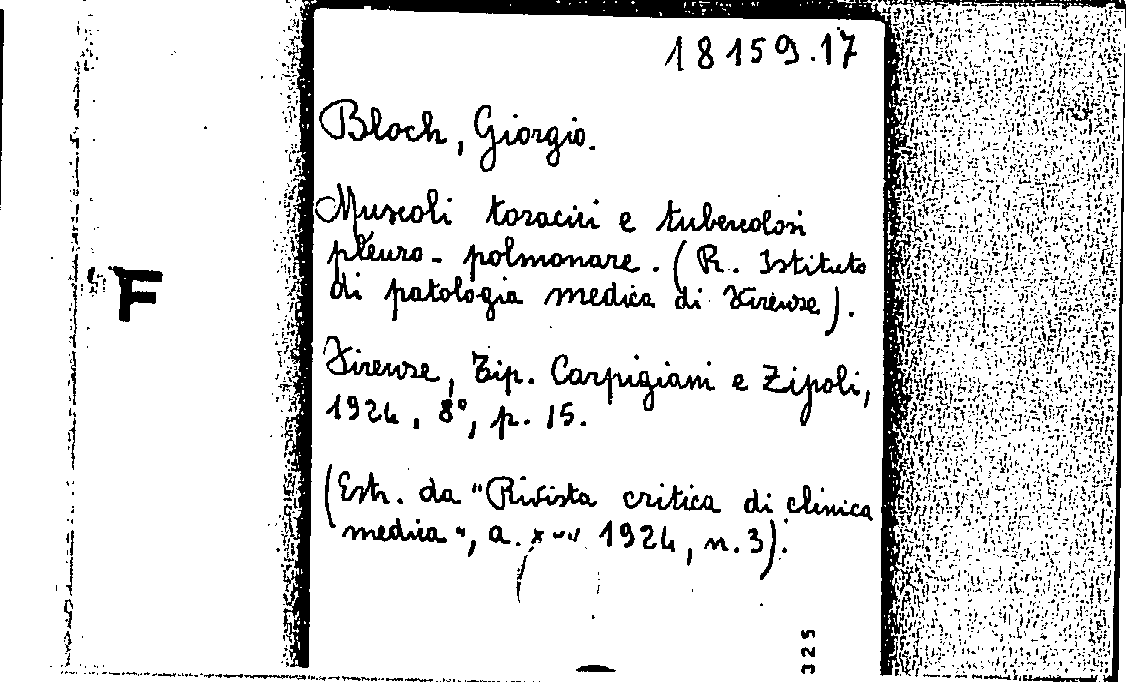 18159.17
Bloch, Giorgio.
Muscoli toracici e tubercolosi
pleuro-polmonare. (R. Istituto
di patologia medica di Firenze).
F
Firenze, Tip. Carpigiani e Zipoli,
1924, 8°, p. 15.
(Estr. da "Rivista critica di clinica
medica", a. 1924, n. 3).
325